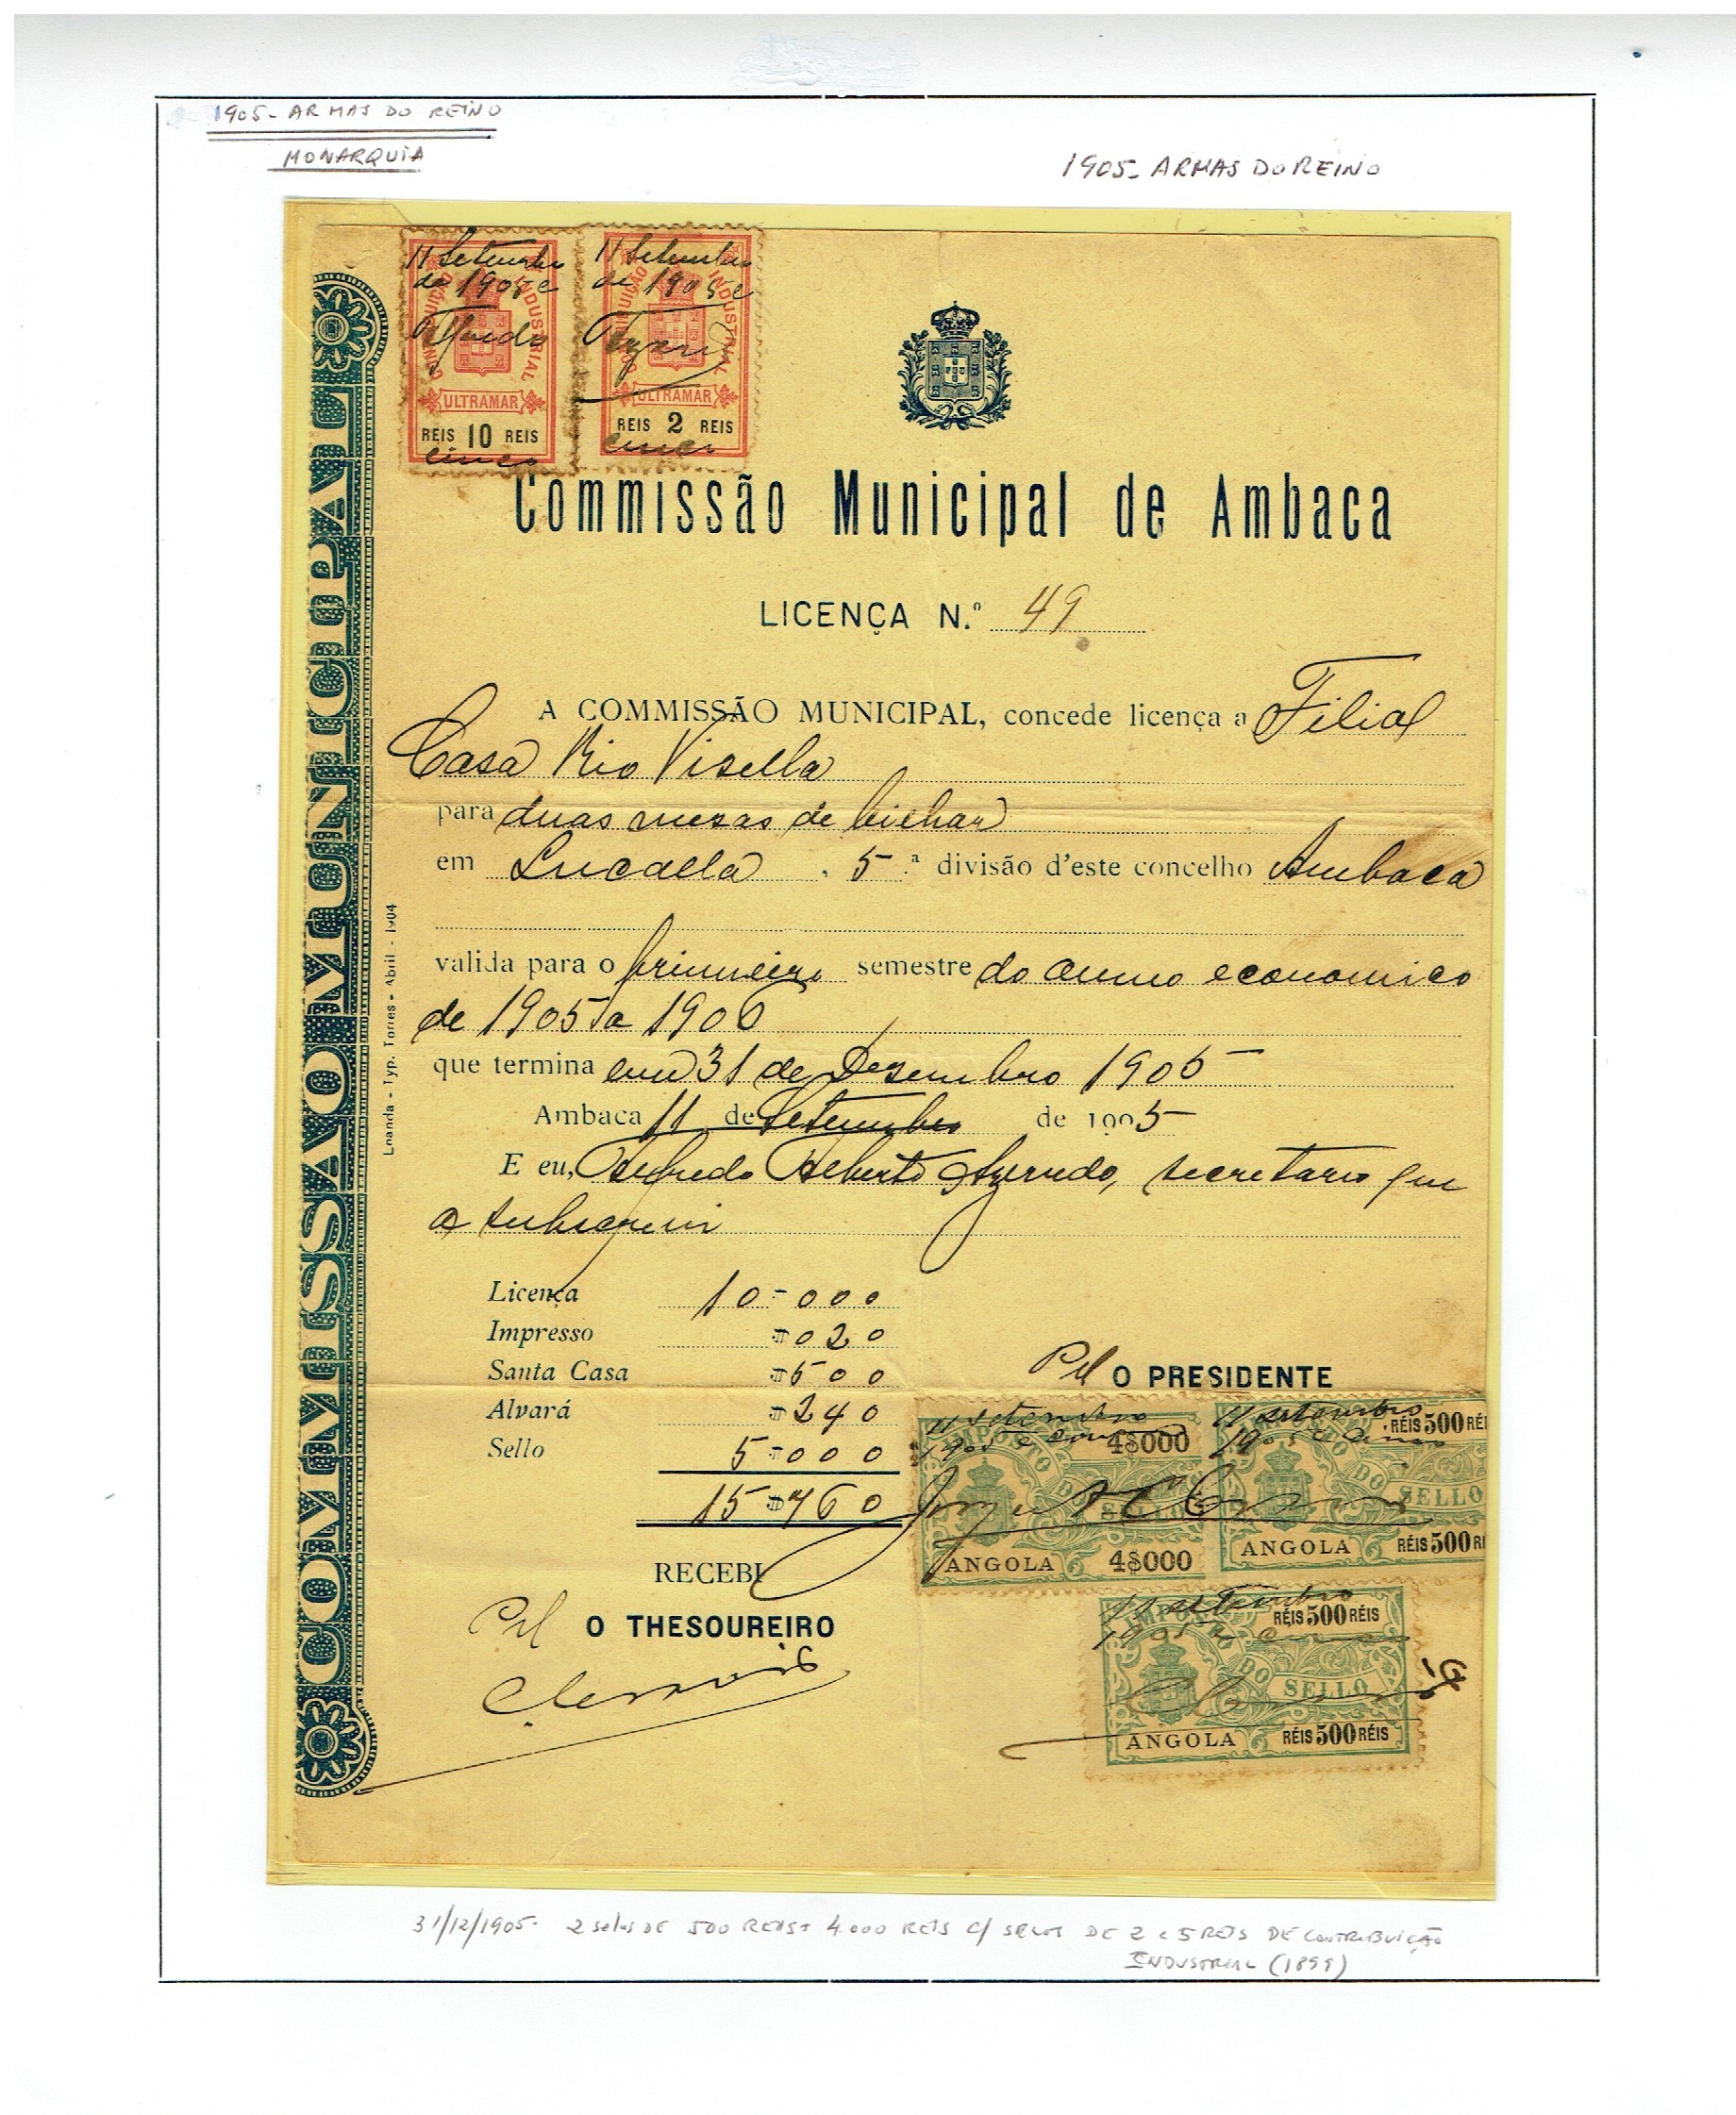 1905- ARMAS DO REINO
MONARQUIA
1905- ARMAS DO REINO
11 Setembro
de 1905 e
Alfredo
CONTRIBUIÇÃO INDUSTRIAL
ULTRAMAR
REIS 10 REIS
cinco
11 Setembro
de 1905 e
CONTRIBUIÇÃO INDUSTRIAL
ULTRAMAR
REIS 2 REIS
cinco
Commissão Municipal de Ambaca
LICENÇA N.º 49
A COMMISSÃO MUNICIPAL, concede licença a Filial
Casa Rio Visella
para duas mezas de bilhar
em Lucalla, 5.ª divisão d'este concelho Ambaca
valida para o primeiro semestre do anno economico
de 1905 a 1906
que termina em 31 de Dezembro 1905
Ambaca 11 de Setembro de 1905
E eu, Alfredo Alberto Azevedo, secretario que
a subscrevi
Licença 10-000
Impresso $020
Santa Casa $500
Alvará $240
Sello 5$000
15$760
RECEBI
Pel O THESOUREIRO
Pel O PRESIDENTE
11 setembro
1905 e cinco
IMPOSTO DO SELLO
4$000
ANGOLA 4$000
11 setembro
1905 e cinco
RÉIS 500 RÉI
DO SELLO
ANGOLA RÉIS 500 RÉ
11 setembro
IMPOSTO DO SELLO
RÉIS 500 RÉIS
ANGOLA RÉIS 500 RÉIS
COMMISSÃO MUNICIPAL
Loanda - Typ. Torres - Abril - 1904
31/12/1905- 2 selos DE 500 REIS+ 4.000 REIS C/ SELOS DE 2 e 5 REIS DE CONTRIBUIÇÃO
INDUSTRIAL (1899)